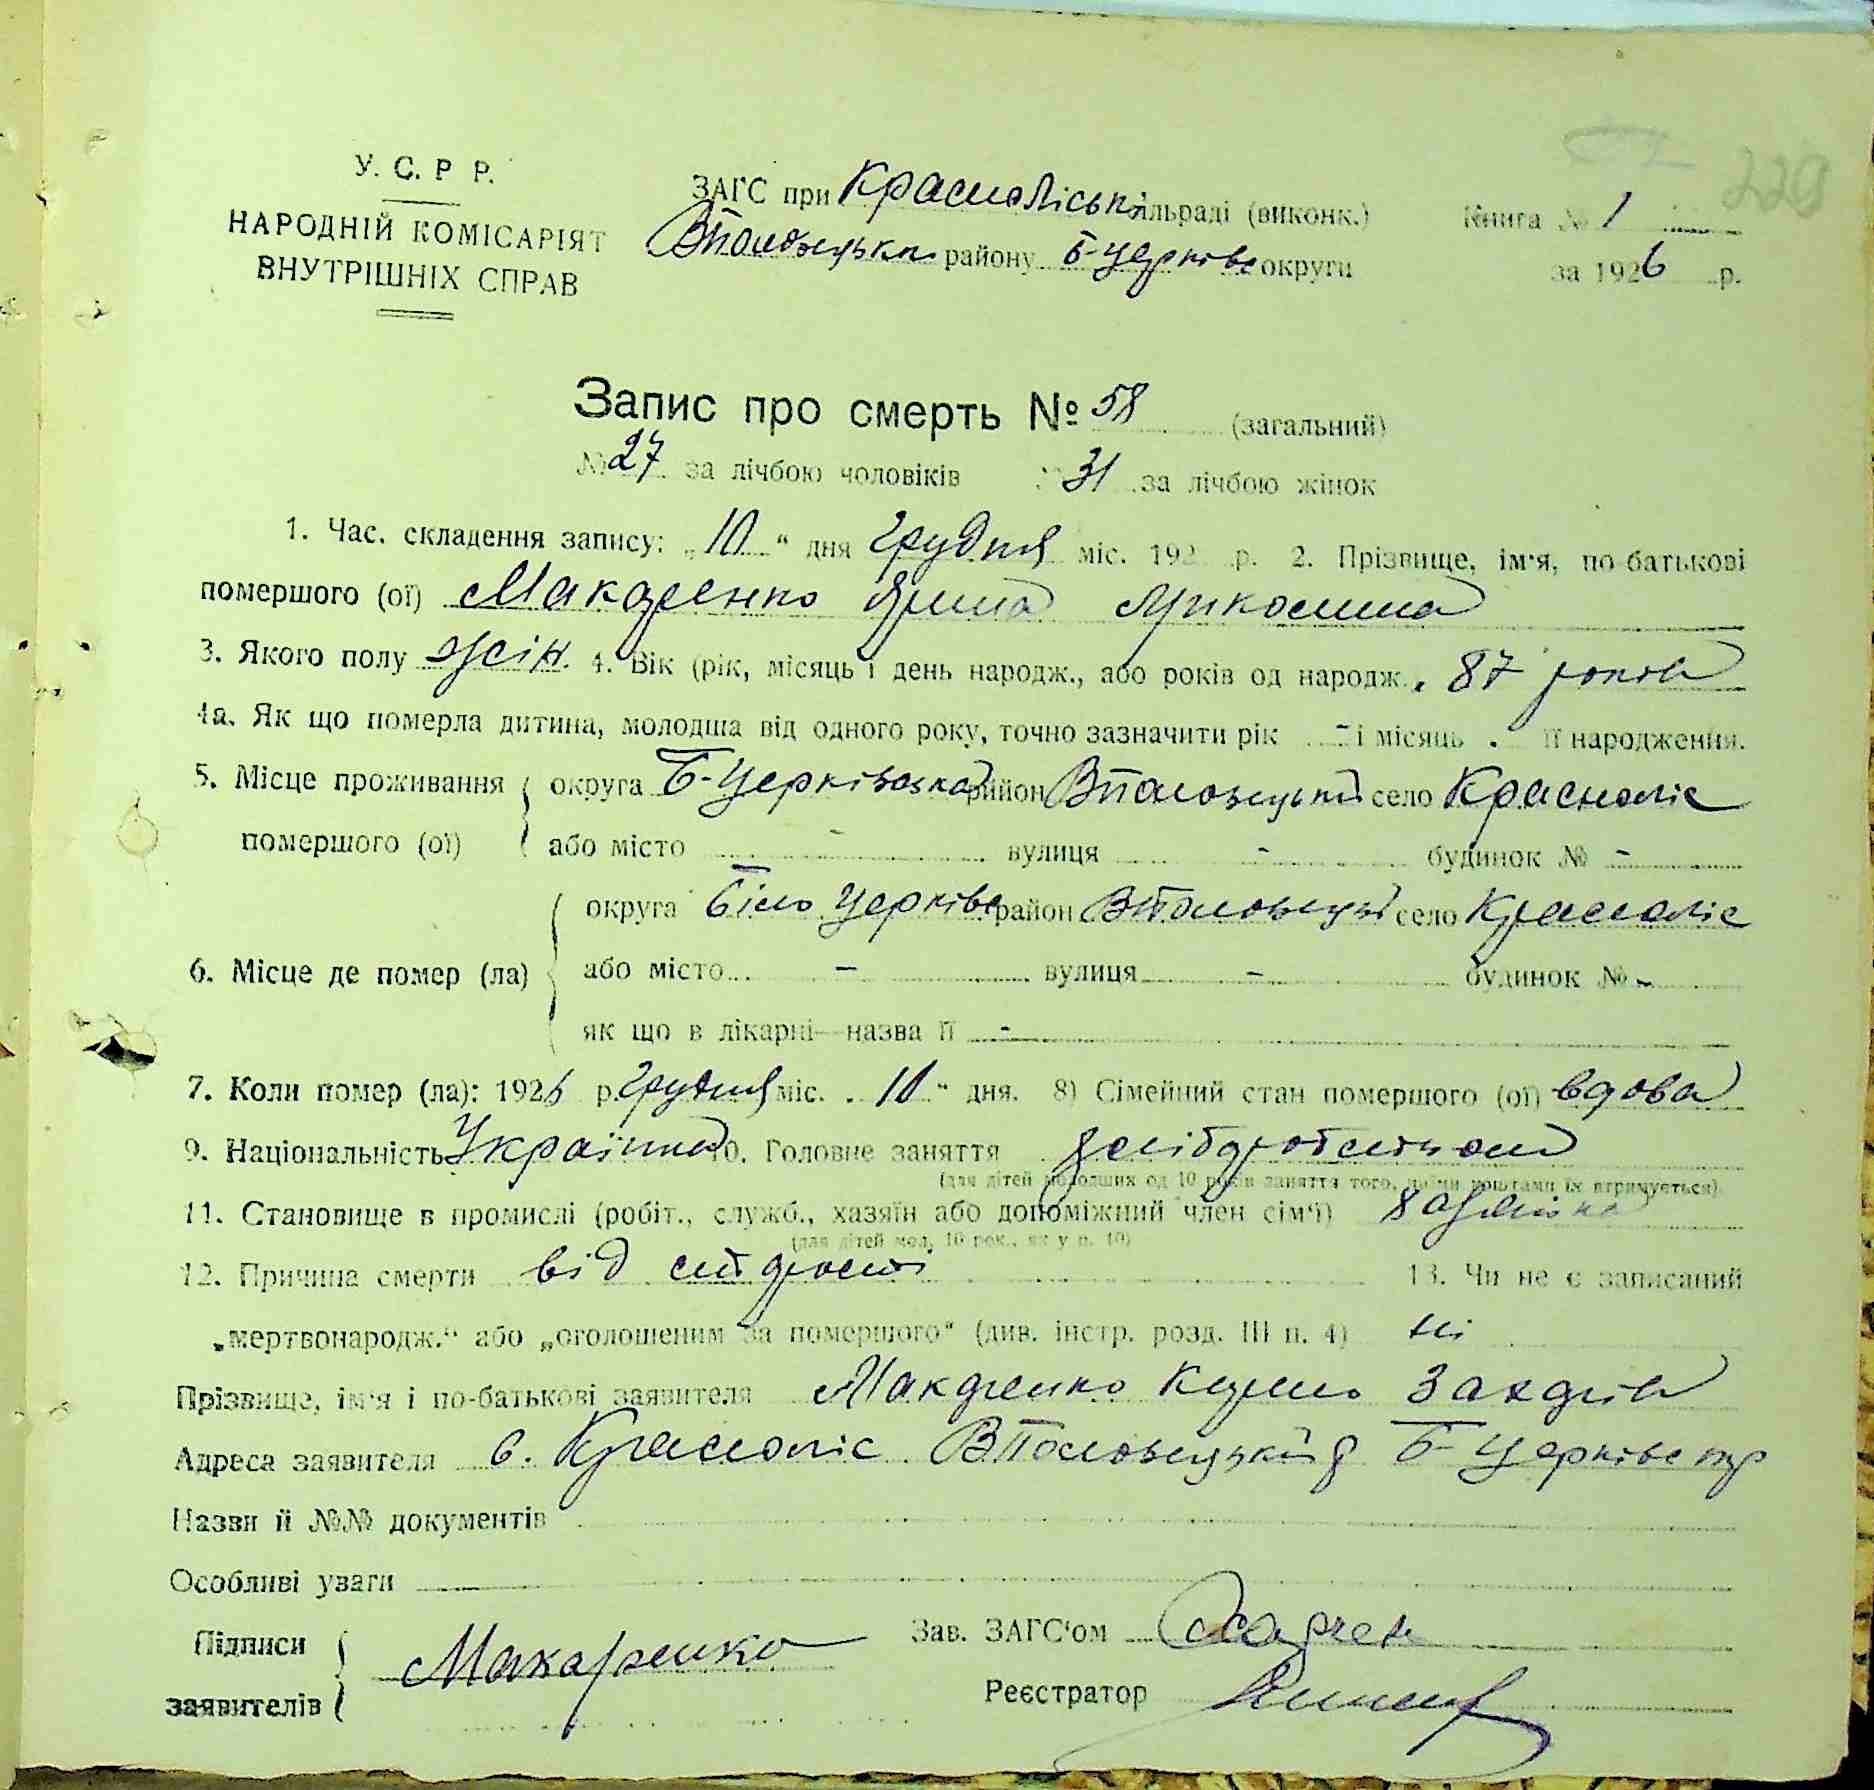 229
У. С. Р Р.
НАРОДНІЙ КОМІСАРІЯТ
ВНУТРІШНІХ СПРАВ
ЗАГС при Красноліськ ільраді (виконк.)
району Б-Церківс округи
Книга № 1
за 1926 р.
Запис про смерть № 58 (загальний)
№ 27 за лічбою чоловіків 31 за лічбою жінок
1. Час. складення запису: „10“ дня Грудня міс. 192 р. 2. Прізвище, ім'я, по-батькові
помершого (ої) Макаренко Ярина
3. Якого полу жін. 4. Вік (рік, місяць і день народж., або років од народж. 87 років
4а. Як що померла дитина, молодша від одного року, точно зазначити рік - і місяць . її народження.
5. Місце проживання округа Б-Церківська район ВПоловецький село Краснолiс
помершого (ої) або місто - вулиця - будинок № -
округа Біло Церківс район ВПоловецьк село Краснолiс
6. Місце де помер (ла) або місто - вулиця - будинок № -
як що в лікарні—назва її -
7. Коли помер (ла): 1926 р. Грудня міс. 10“ дня. 8) Сімейний стан помершого (ої) вдова
9. Національність Українка 10. Головне заняття
(для дітей молодших од 10 років заняття того, чиїми коштами їх втримується).
11. Становище в промислі (робіт., служб., хазяїн або допоміжний член сім'ї) хазяйка
(для дітей мол. 10 рок., як у п. 10)
12. Причина смерти від старости 13. Чи не є записаний
„мертвонародж.“ або „оголошеним за помершого“ (див. інстр. розд. III п. 4) ні
Прізвище, ім'я і по-батькові заявителя Макаренко Кузьма Захарів
Адреса заявителя с. Краснолiс ВПоловецький р Б-Церківс окр
Назви й №№ документів
Особливі уваги
Підписи
заявителів
Макаренко
Зав. ЗАГС'ом
Реєстратор